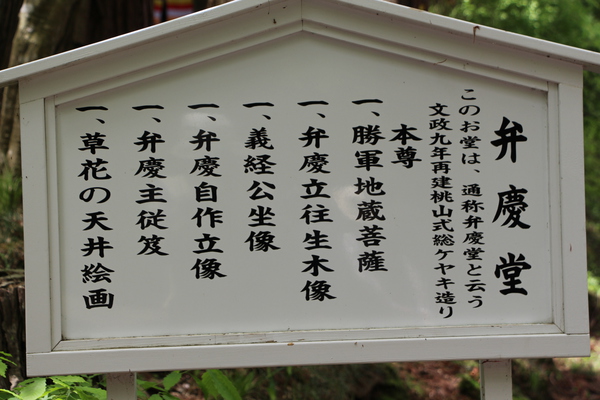 弁慶堂
このお堂は、通称弁慶堂と云う
文政九年再建桃山式総ケヤキ造り
本尊
一、勝軍地蔵菩薩
一、弁慶立往生木像
一、義経公坐像
一、弁慶自作立像
一、弁慶主従笈
一、草花の天井絵画